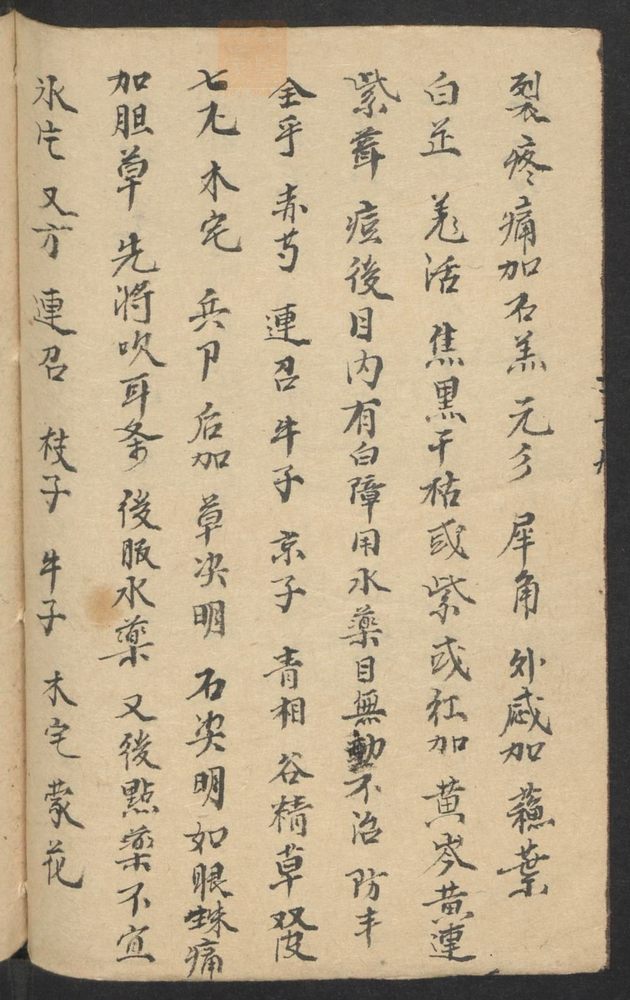 裂疼痛加石羔元彡犀角外感加蘓葉
白芷羗活焦黒干枯或紫或紅加黄岑黄連
紫茸痘後目内有白障用水藥目無動不治防丰
全乎赤芍連召牛子京子青相谷精草双皮
七九木宅兵卩后加草决明石决明如眼蛛痛
加胆草先将吹耳条後服水藥又後點藥不宜
氷片又方連召枝子牛子木宅蒙花